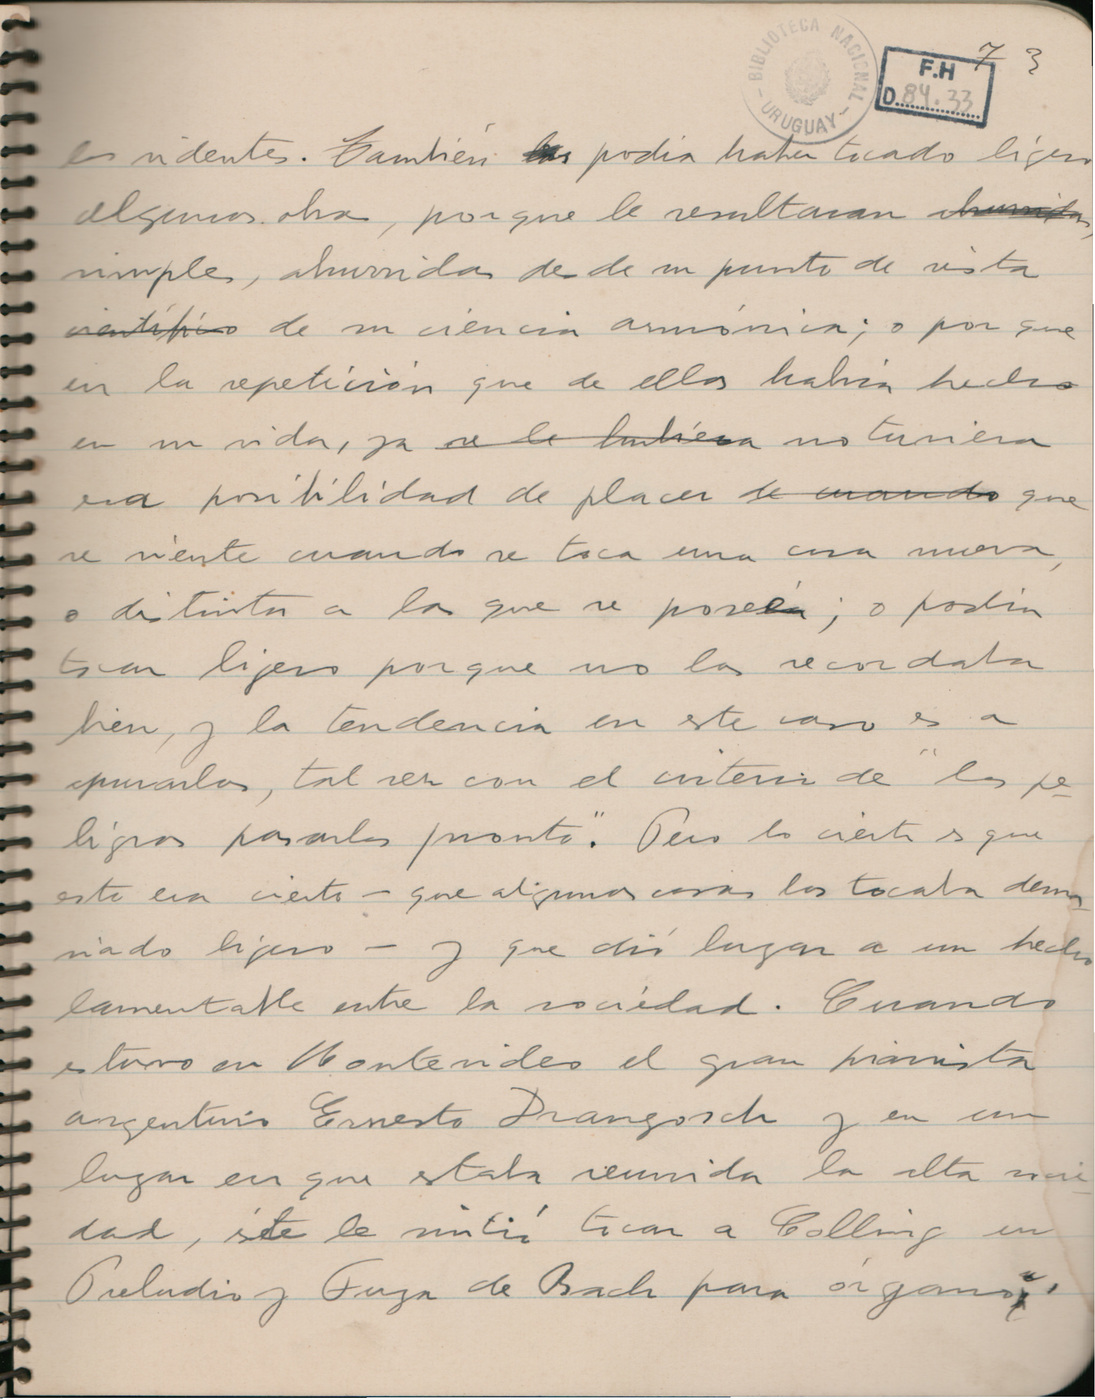 73
BIBLIOTECA NACIONAL
- URUGUAY -
F.H
D. 84.33
los videntes. También las podia haber tocado ligero
algunas obras, porque le resultaran aburridas,
simples, aburridas desde su punto de vista
científico de su ciencia armónica; o por que
en la repetición que de ellas habia hecho
en su vida, ya se le hubiera no tuviera
esa posibilidad de placer de cuando que
se siente cuando se toca una cosa nueva,
o distinta a las que se poseía; o podia
tocar lijero porque no las recordaba
bien, y la tendencia en este caso es a
apurarlas, tal vez con el criterio de "los pe-
ligros pasarlos pronto". Pero lo cierto es que
esto era cierto - que algunas cosas las tocaba dema-
siado lijero - y que dió lugar a un hecho
lamentable entre la sociedad. Cuando
estuvo en Montevideo el gran pianista
argentino Ernesto Drangosch y en un
lugar en que estaba reunida la alta socie-
dad, éste le sintió tocar a Colling un
Preludio y Fuga de Bach para órgano;